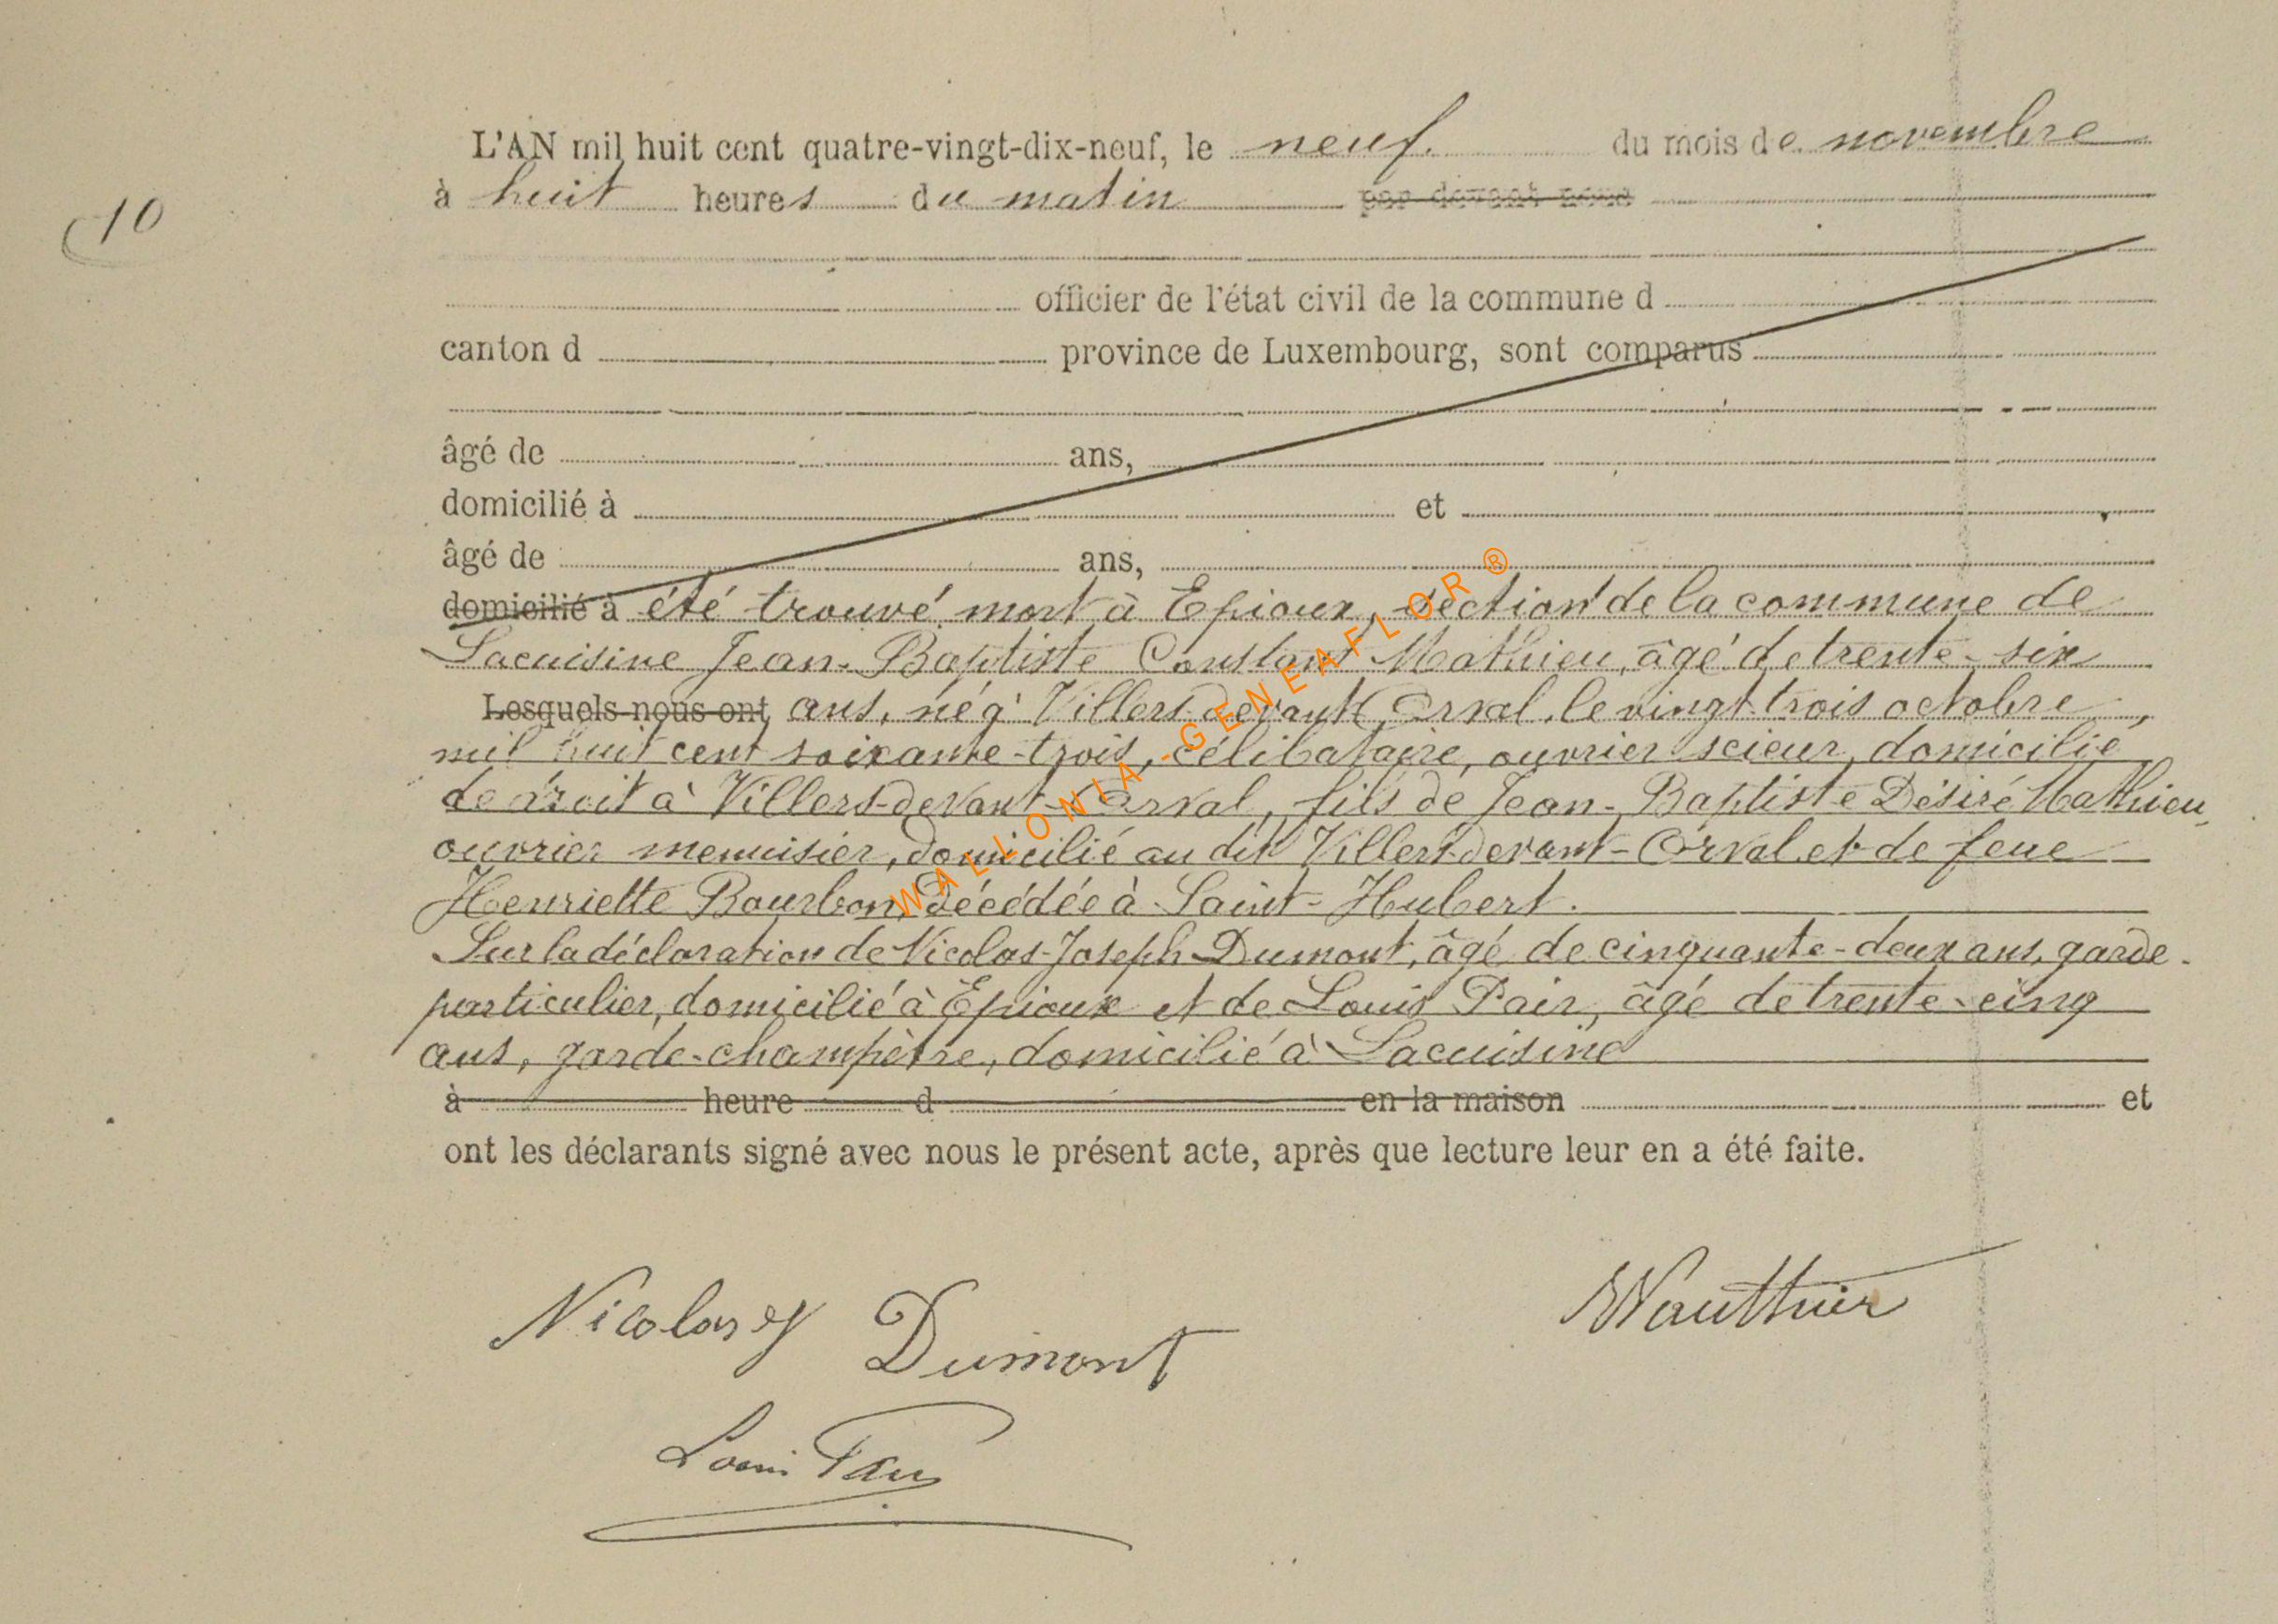 10
L'AN mil huit cent quatre-vingt-dix-neuf, le neuf. du mois de novembre
à huit heures du matin par devant nous
officier de l'état civil de la commune d
canton d province de Luxembourg, sont comparus
âgé de ans,
domicilié à et
âgé de ans,
domicilié à été trouvé mort à Epioux, section de la commune de
Lacuisine Jean-Baptiste Constant Mathieu, âgé de trente-six
Lesquels nous ont ans, né à Villers-devant-Orval, le vingt-trois octobre,
mil huit cent soixante-trois, célibataire, ouvrier scieur, domicilié
de droit à Villers-devant-Orval, fils de Jean-Baptiste Désiré Mathieu,
ouvrier menuisier, domicilié au dit Villers-devant-Orval et de feue
Henriette Bourbon, décédée à Saint-Hubert.
Sur la déclaration de Nicolas-Joseph Dumont, âgé de cinquante-deux ans, garde-
particulier, domicilié à Epioux et de Louis Pair, âgé de trente-cinq
ans, garde-champêtre, domicilié à Lacuisine
à heure d en la maison et
ont les déclarants signé avec nous le présent acte, après que lecture leur en a été faite.
Nicolas Dumont
Wauthier
Louis Pair
WALLONIA-GENEAFLOR®